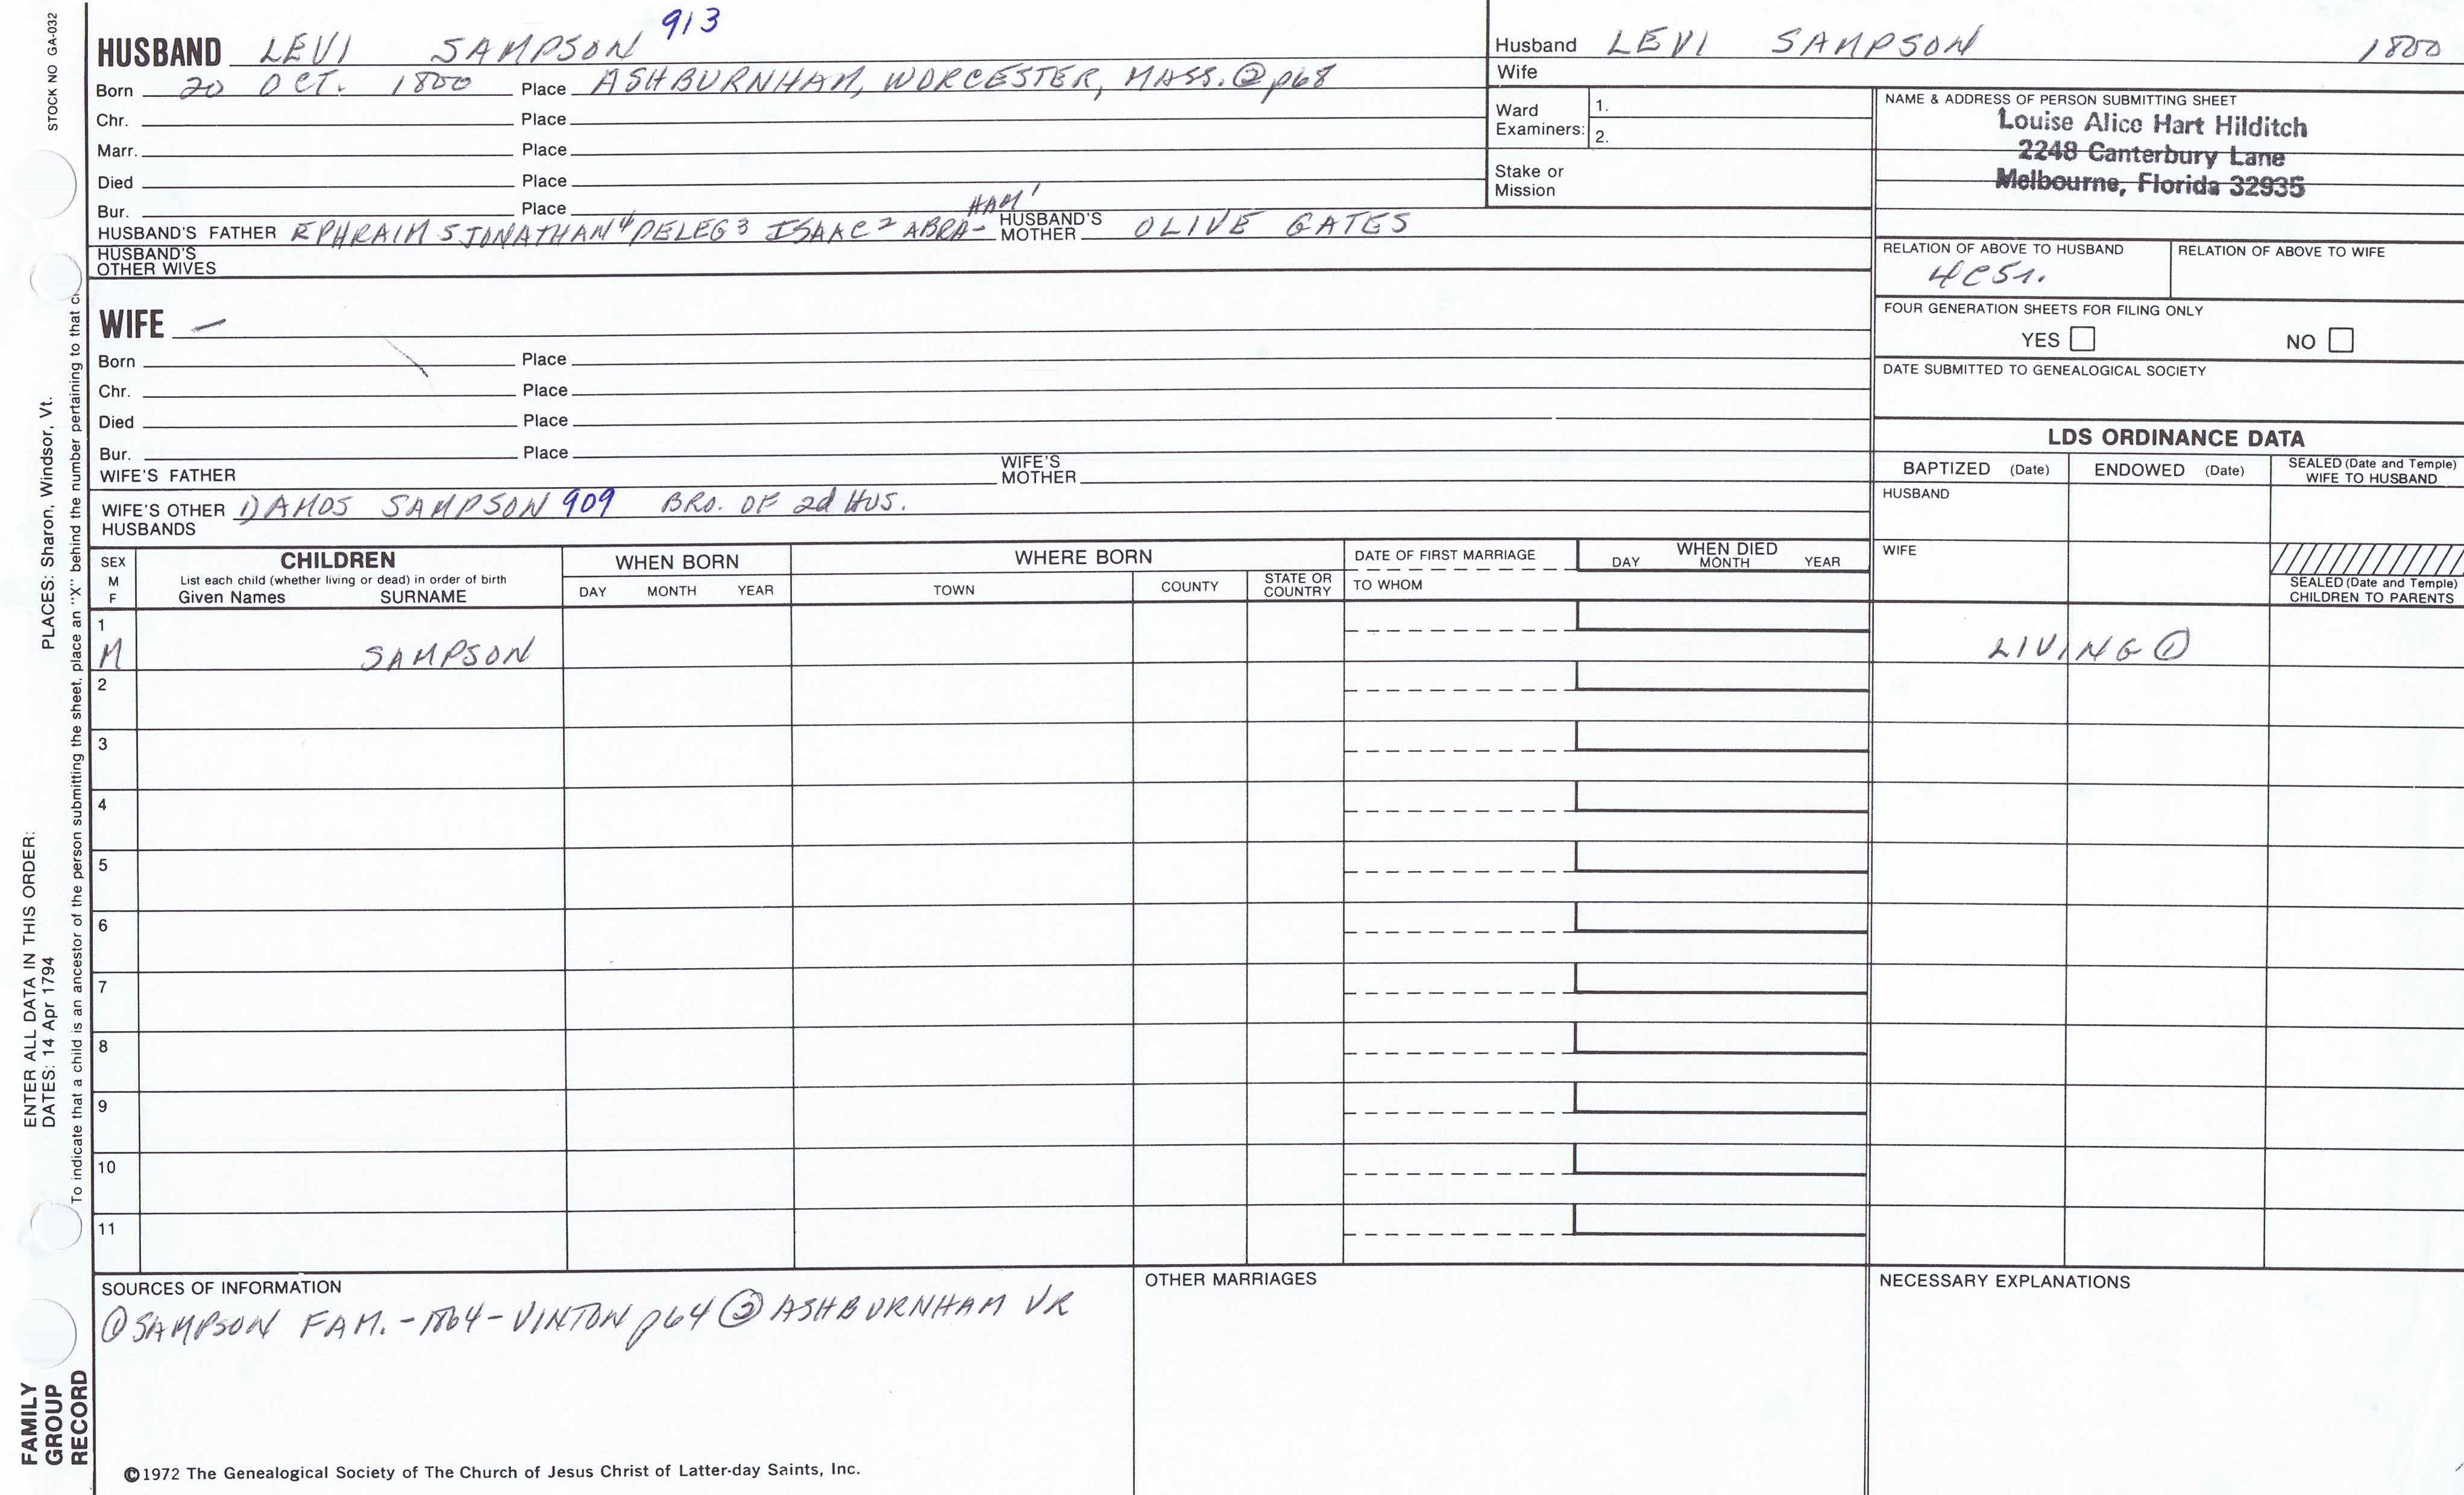 STOCK NO GA-032
PLACES: Sharon, Windsor, Vt.
ENTER ALL DATA IN THIS ORDER:
DATES: 14 Apr 1794
To indicate that a child is an ancestor of the person submitting the sheet, place an "X" behind the number pertaining to that
FAMILY
GROUP
RECORD
913
HUSBAND LEVI SAMPSON
Born 20 OCT. 1800 Place ASHBURNHAM, WORCESTER, MASS. ② p68
Chr. Place
Marr. Place
Died Place
Bur. Place
HAM 1
HUSBAND'S FATHER EPHRAIM 5 JONATHAN 4 PELEG 3 ISAAC 2 ABRA- HUSBAND'S MOTHER OLIVE GATES
HUSBAND'S OTHER WIVES
WIFE —
Born Place
Chr. Place
Died Place
Bur. Place
WIFE'S FATHER WIFE'S MOTHER
WIFE'S OTHER HUSBANDS 1) AMOS SAMPSON 909 BRO. OF 2d HUS.
Husband LEVI SAMPSON 1800
Wife
Ward Examiners: 1.
2.
Stake or Mission
NAME & ADDRESS OF PERSON SUBMITTING SHEET
Louise Alice Hart Hilditch
2248 Canterbury Lane
Melbourne, Florida 32935
RELATION OF ABOVE TO HUSBAND RELATION OF ABOVE TO WIFE
4C5r.
FOUR GENERATION SHEETS FOR FILING ONLY
YES NO
DATE SUBMITTED TO GENEALOGICAL SOCIETY
LDS ORDINANCE DATA
BAPTIZED (Date) ENDOWED (Date) SEALED (Date and Temple) WIFE TO HUSBAND
HUSBAND
WIFE
SEALED (Date and Temple) CHILDREN TO PARENTS
SEX M F
CHILDREN
List each child (whether living or dead) in order of birth
Given Names SURNAME
WHEN BORN
DAY MONTH YEAR
WHERE BORN
TOWN COUNTY STATE OR COUNTRY
DATE OF FIRST MARRIAGE
TO WHOM
WHEN DIED
DAY MONTH YEAR
1
M SAMPSON LIVING ①
2
3
4
5
6
7
8
9
10
11
SOURCES OF INFORMATION
① SAMPSON FAM. - 1864 - VINTON p64 ② ASHBURNHAM VR
OTHER MARRIAGES
NECESSARY EXPLANATIONS
©1972 The Genealogical Society of The Church of Jesus Christ of Latter-day Saints, Inc.